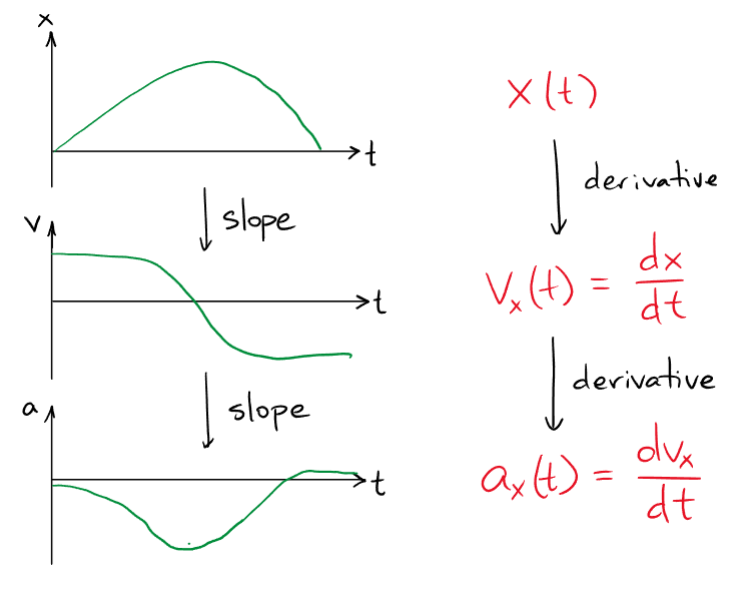 x
t
slope
v
t
slope
a
t
x(t)
derivative
vₓ(t) = dx/dt
derivative
aₓ(t) = dvₓ/dt